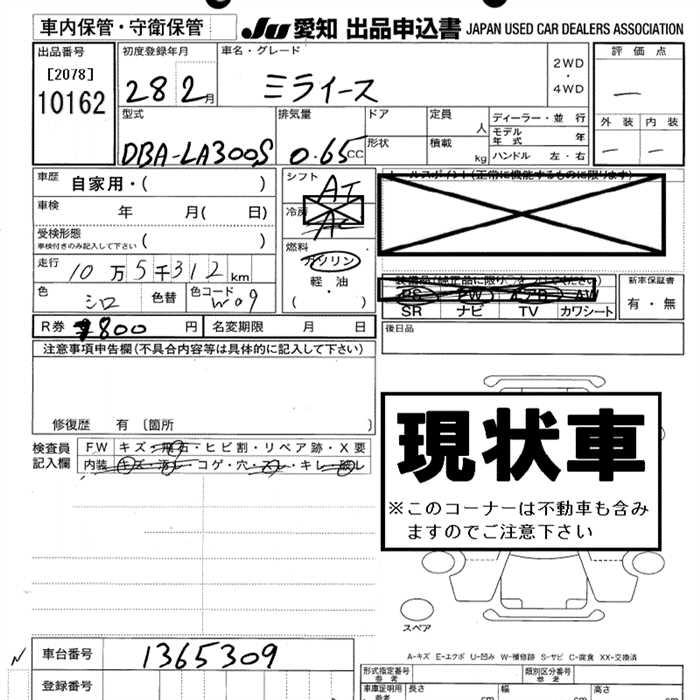 車内保管・守衛保管 JU 愛知 出品申込書 JAPAN USED CAR DEALERS ASSOCIATION
出品番号 [2078] 10162
初度登録年月 28 2月
車名・グレード ミライース
2WD・4WD
評価点 —
外装 — 内装 —
型式 DBA-LA300S
排気量 0.65cc
ドア
形状
定員 人
積載 kg
ディーラー・並行
モデル年式 年
ハンドル 左・右
車歴 自家用・( )
車検 年 月( 日)
受検形態 車検付きのみ記入して下さい ( )
走行 10万5千312km
色 シロ 色替 色コード W09
シフト AT
冷房 AC
燃料 ガソリン 軽・油 ( )
セールスポイント(正常に機能するものに限ります)
装備品(純正品に限り
PS PW エアB AW
SR ナビ TV カワシート
新車保証書 有・無
R券 ¥800円 名変期限 月 日
後日品
注意事項申告欄(不具合内容等は具体的に記入して下さい)
修復歴 有 〔箇所 〕
検査員記入欄
FW キズ・飛石・ヒビ割・リペア跡・X要
内装 キズ・汚レ・コゲ・穴・スレ・キレ・破レ
現状車
※このコーナーは不動車も含み
ますのでご注意下さい
スペア
A-キズ E-エクボ U-凹み W-補修跡 S-サビ C-腐食 XX-交換済
N 車台番号 1365309
登録番号
形式指定番号 参考
類別区分番号 参考
車庫証明用 参考 長さ cm 幅 cm 高さ cm